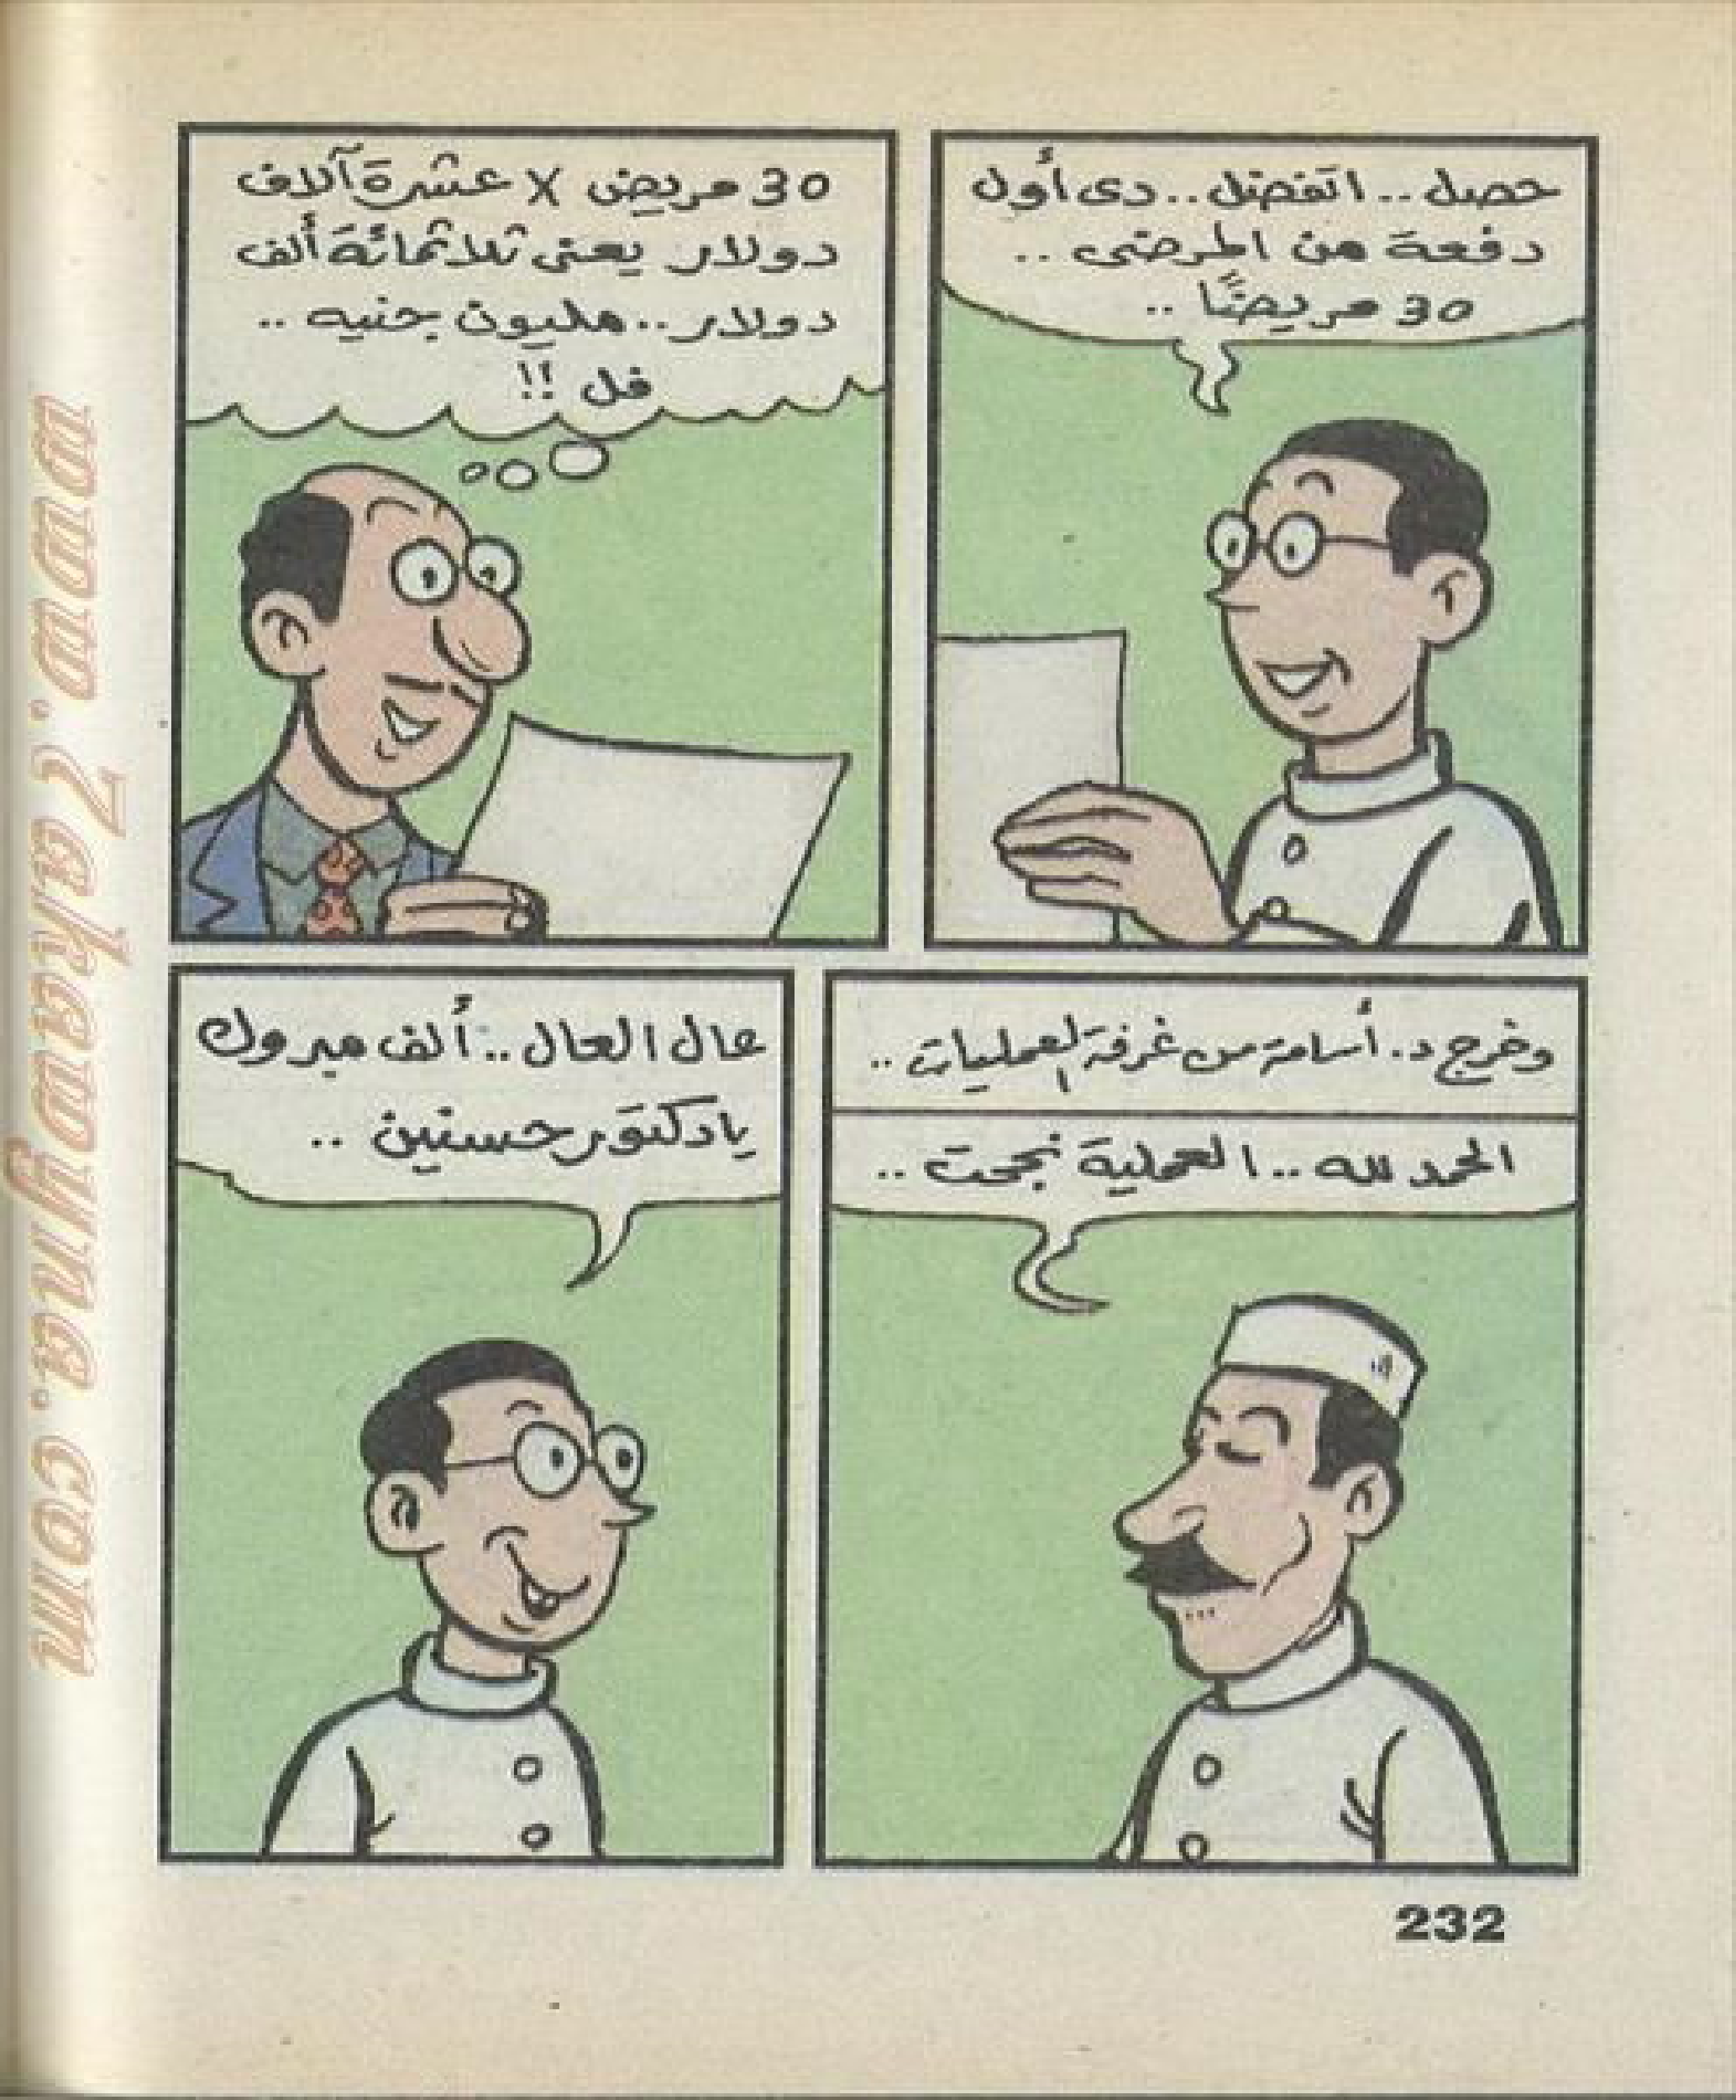 حصل .. اتفضل .. دى أول
دفعة من المرضى ..
30 مريضًا ..
30 مريض X عشرة آلاف
دولار يعنى ثلاثمائة ألف
دولار .. مليون جنيه ..
فل !!
وخرج د. أسامة من غرفة العمليات ..
الحمد لله .. العملية نجحت ..
عال العال .. ألف مبروك
يا دكتور حسنين ..
232
www.7akaayina.com